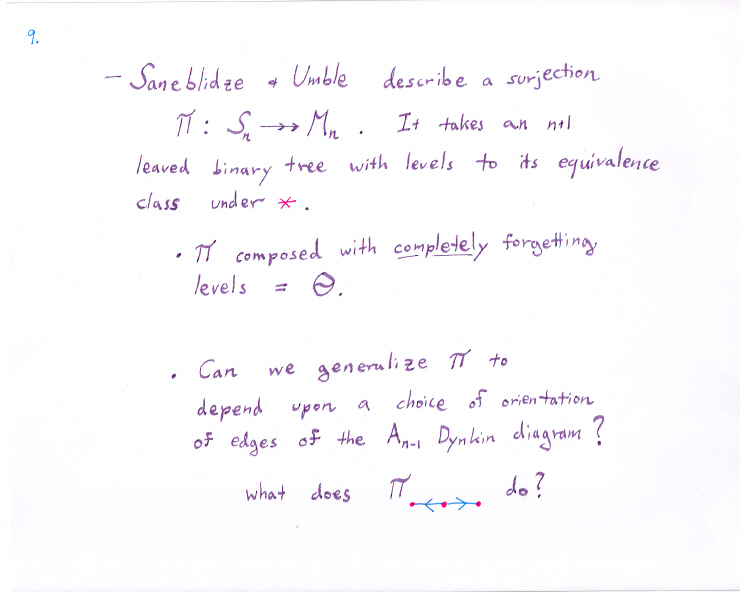 9.
- Saneblidze & Umble describe a surjection
π : Sₙ →» Mₙ . It takes an n+1
leaved binary tree with levels to its equivalence
class under * .
• π composed with completely forgetting
levels = Θ.
• Can we generalize π to
depend upon a choice of orientation
of edges of the Aₙ₋₁ Dynkin diagram?
what does π •←•→• do?